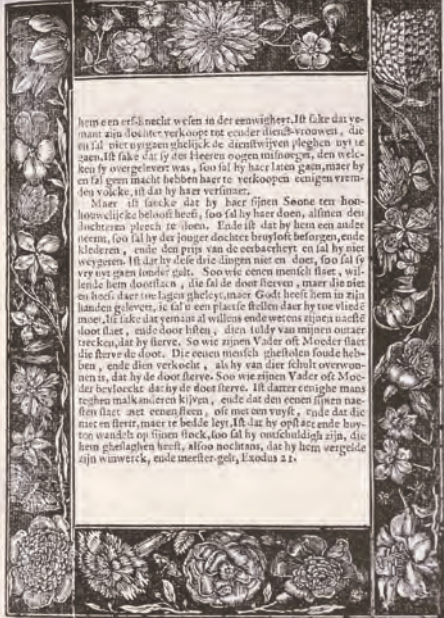 hem een erf-knecht wesen in der eeuwigheyt. Ist sake dat ye-
mant zijn dochter verkoopt tot eender dienst-vrouwen, die
en sal niet uytgaen ghelijck de dienstwijven pleghen uyt te
gaen. Ist sake dat sy des Heeren oogen misnoeget, den welc-
ken sy overgelevert was, soo sal hy haer laten gaen, maer hy
en sal geen macht hebben haer te verkoopen eenigen vrem-
den volcke, ist dat hy haer versmaet.
Maer ist saecke dat hy haer sijnen Soone ten hou-
houwelijcke belooft heeft, soo sal hy haer doen, alsmen den
dochteren pleech te doen. Ende ist dat hy hem een ander
neemt, soo sal hy der jonger dochter bruyloft besorgen, ende
klederen, ende den prijs van de eerbaerheyt en sal hy niet
weygeren. Ist dat hy dese drie dingen niet en doet, soo sal sy
vry uyt gaen sonder gelt. Soo wie eenen mensch slaet, wil-
lende hem dootslaen, die sal de doot sterven, maer die niet
en heeft daer toe lagen gheleyt, maer Godt heeft hem in zijn
handen gelevert, ic sal u een plaetse stellen daer hy toe vliedē
moet, Ist sake dat yemant al willens ende wetens zijnen naesten
doot slaet, ende door listen, dien suldy van mijnen outaer
trecken, dat hy sterve. So wie zijnen Vader oft Moeder slaet
die sterve de doot. Die eenen mensch ghestolen soude heb-
ben, ende dien verkocht, als hy van dier schult overwon-
nen is, dat hy de doot sterve. Soo wie zijnen Vader oft Moe-
der bevloeckt dat hy de doot sterve. Ist datter eenighe mans
teghen malkanderen kijven, ende dat den eenen sijnen nae-
sten slaet met eenen steen, oft met een vuyst, ende dat die
niet en sterft, maer te bedde leyt, Ist dat hy opstaet ende buy-
ten wandelt op sijnen stock, soo sal hy ontschuldigh zijn, die
hem gheslaghen heeft, alsoo nochtans, dat hy hem vergelde
zijn winwerck, ende meester-gelt, Exodus 21.